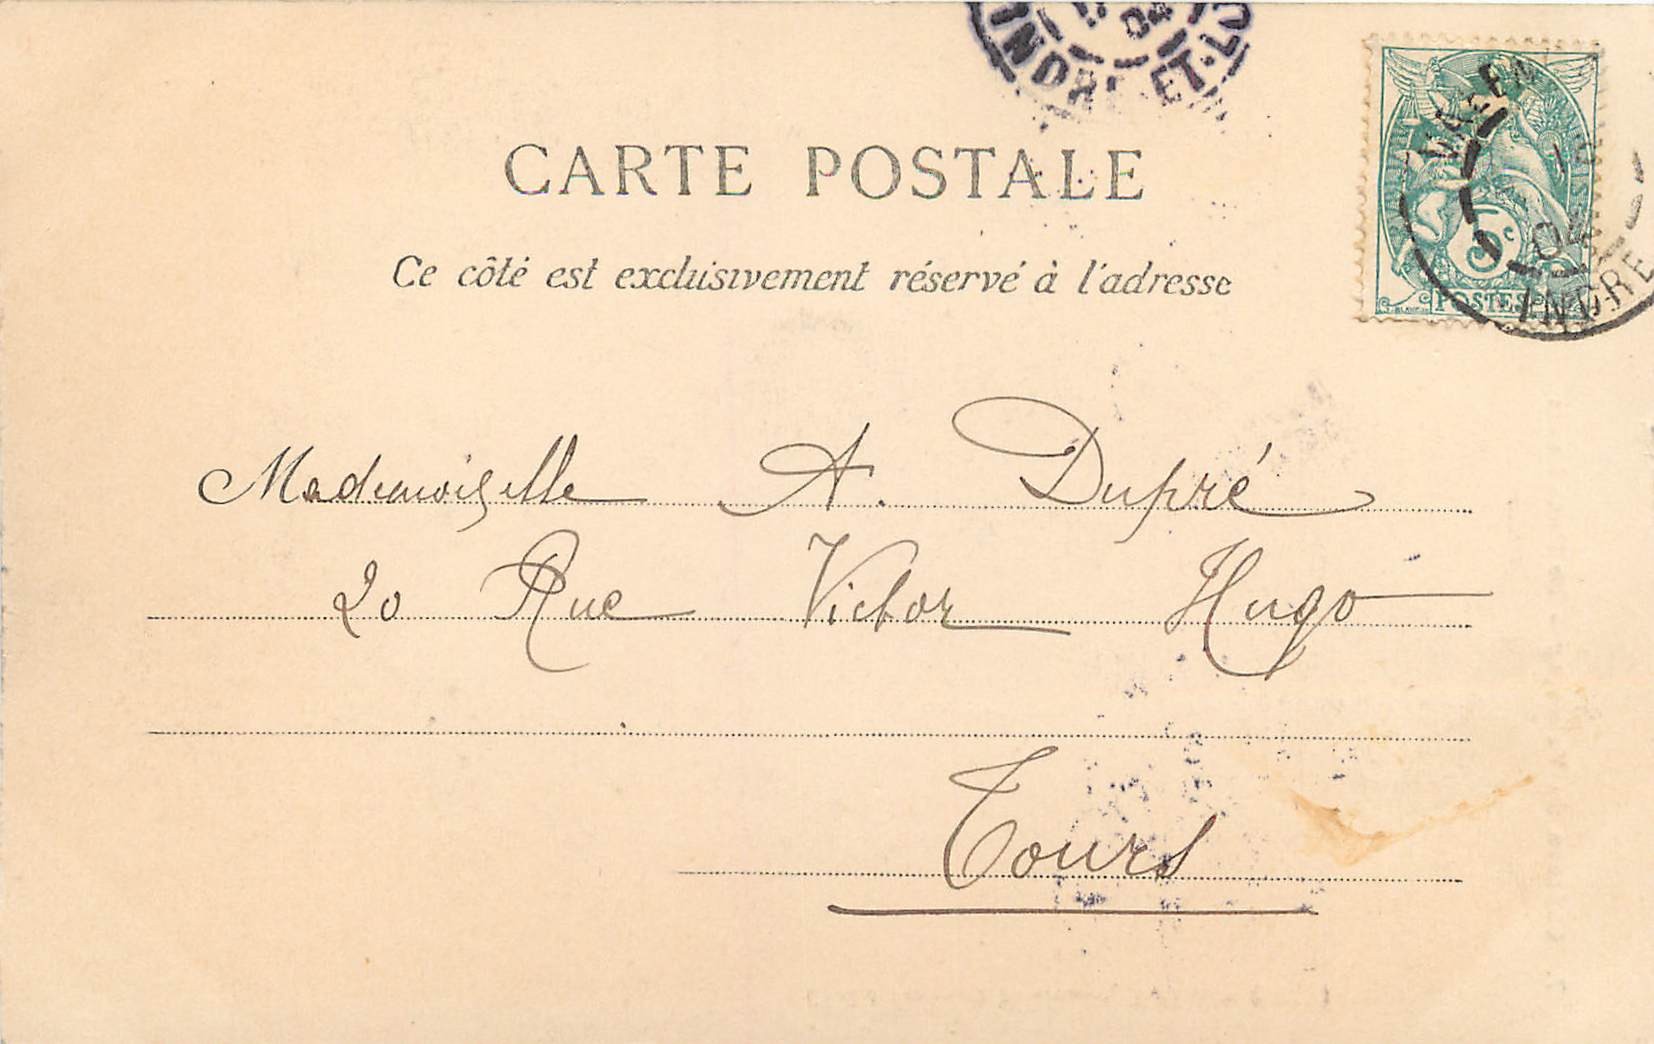 04
INDRE-ET-L
CARTE POSTALE
Ce côté est exclusivement réservé à l'adresse
5c
04
POSTES
INDRE
Mademoiselle A. Dupré
20 Rue Victor Hugo
Tours